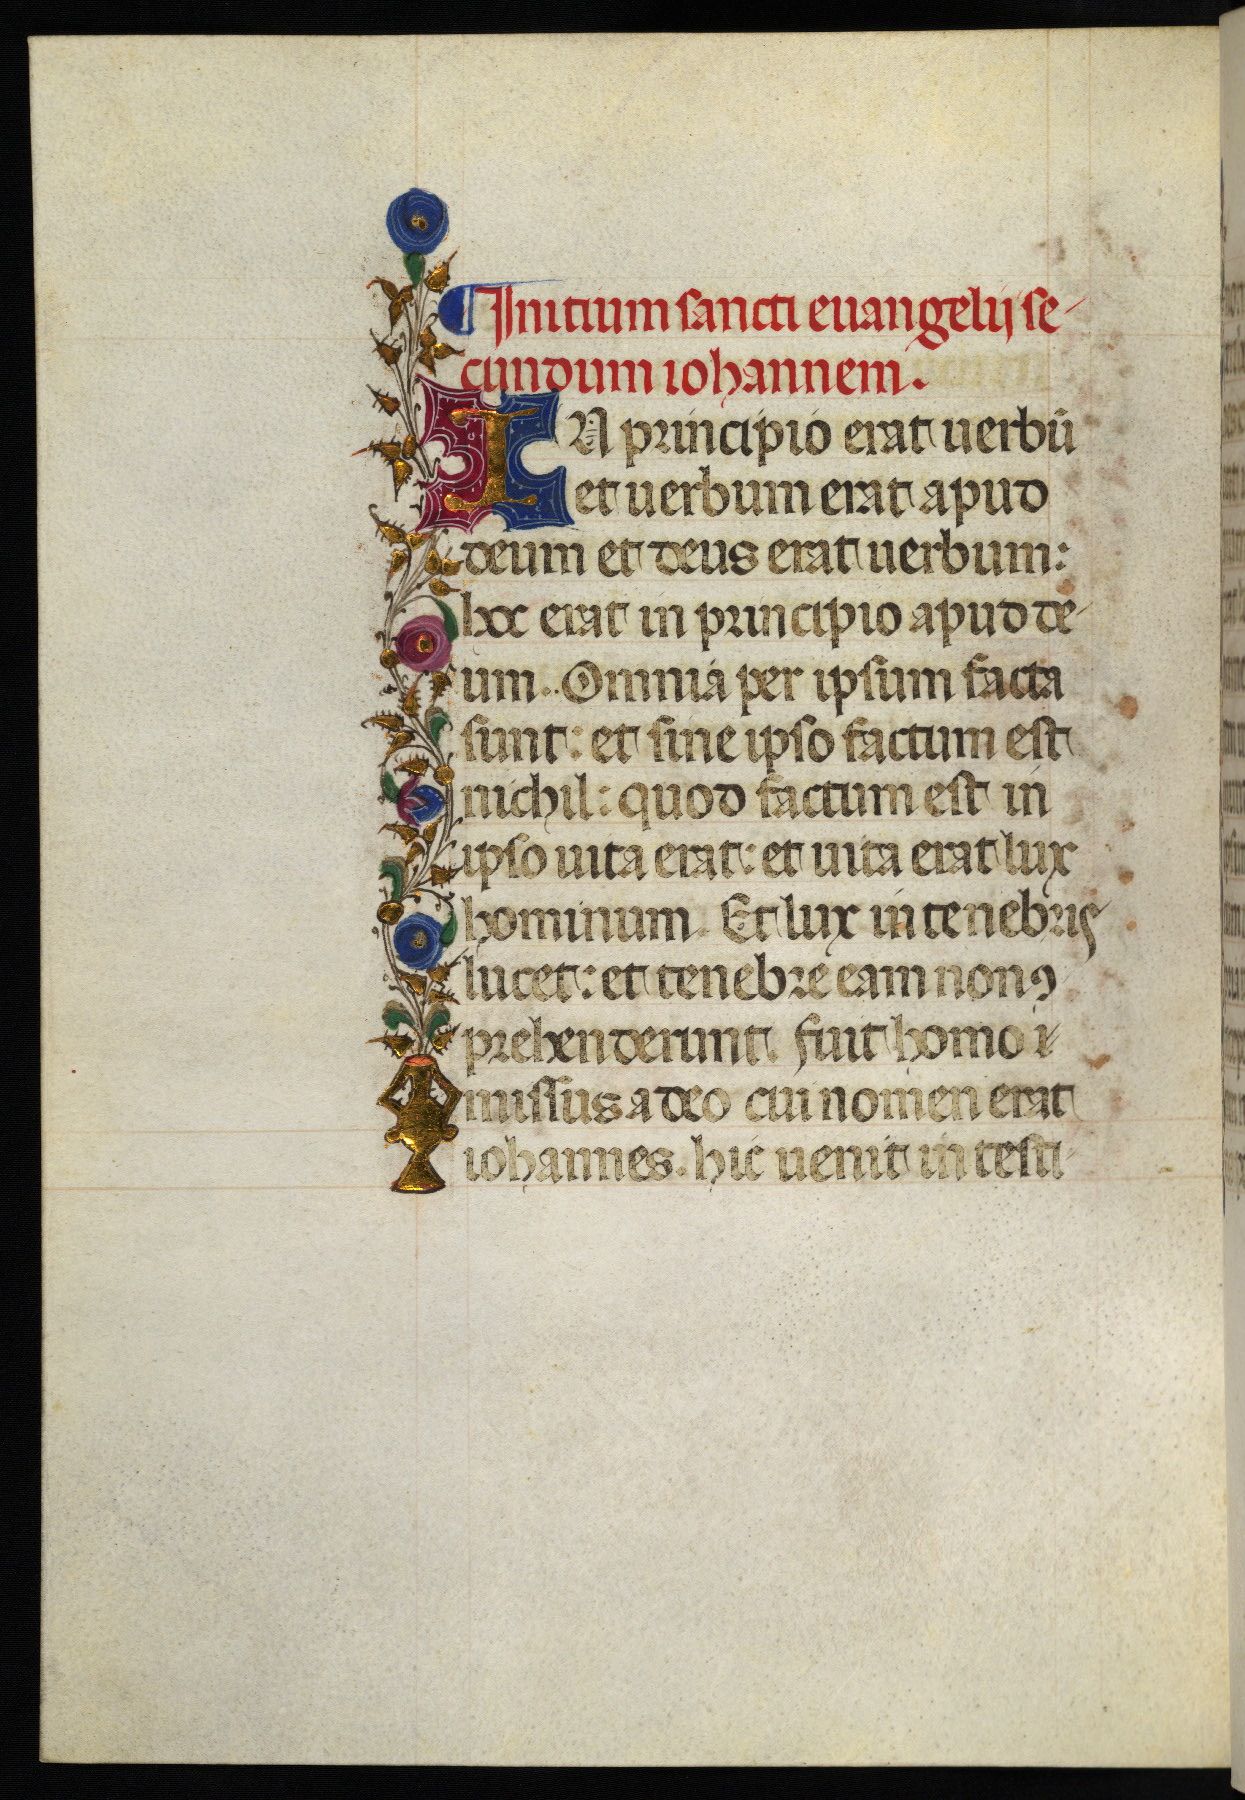 ¶ Initium sancti euangelij se-
cundum iohannem.
IN principio erat uerbū
et uerbum erat apud
deum et deus erat uerbum:
hoc erat in principio apud de-
um. Omnia per ipsum facta
sunt: et sine ipso factum est
nichil: quod factum est in
ipso uita erat: et uita erat lux
hominum. Et lux in tenebris
lucet: et tenebre eam non ꝯ
prehenderunt. fuit homo i-
missus a deo cui nomen erat
iohannes. hic uenit in testi-